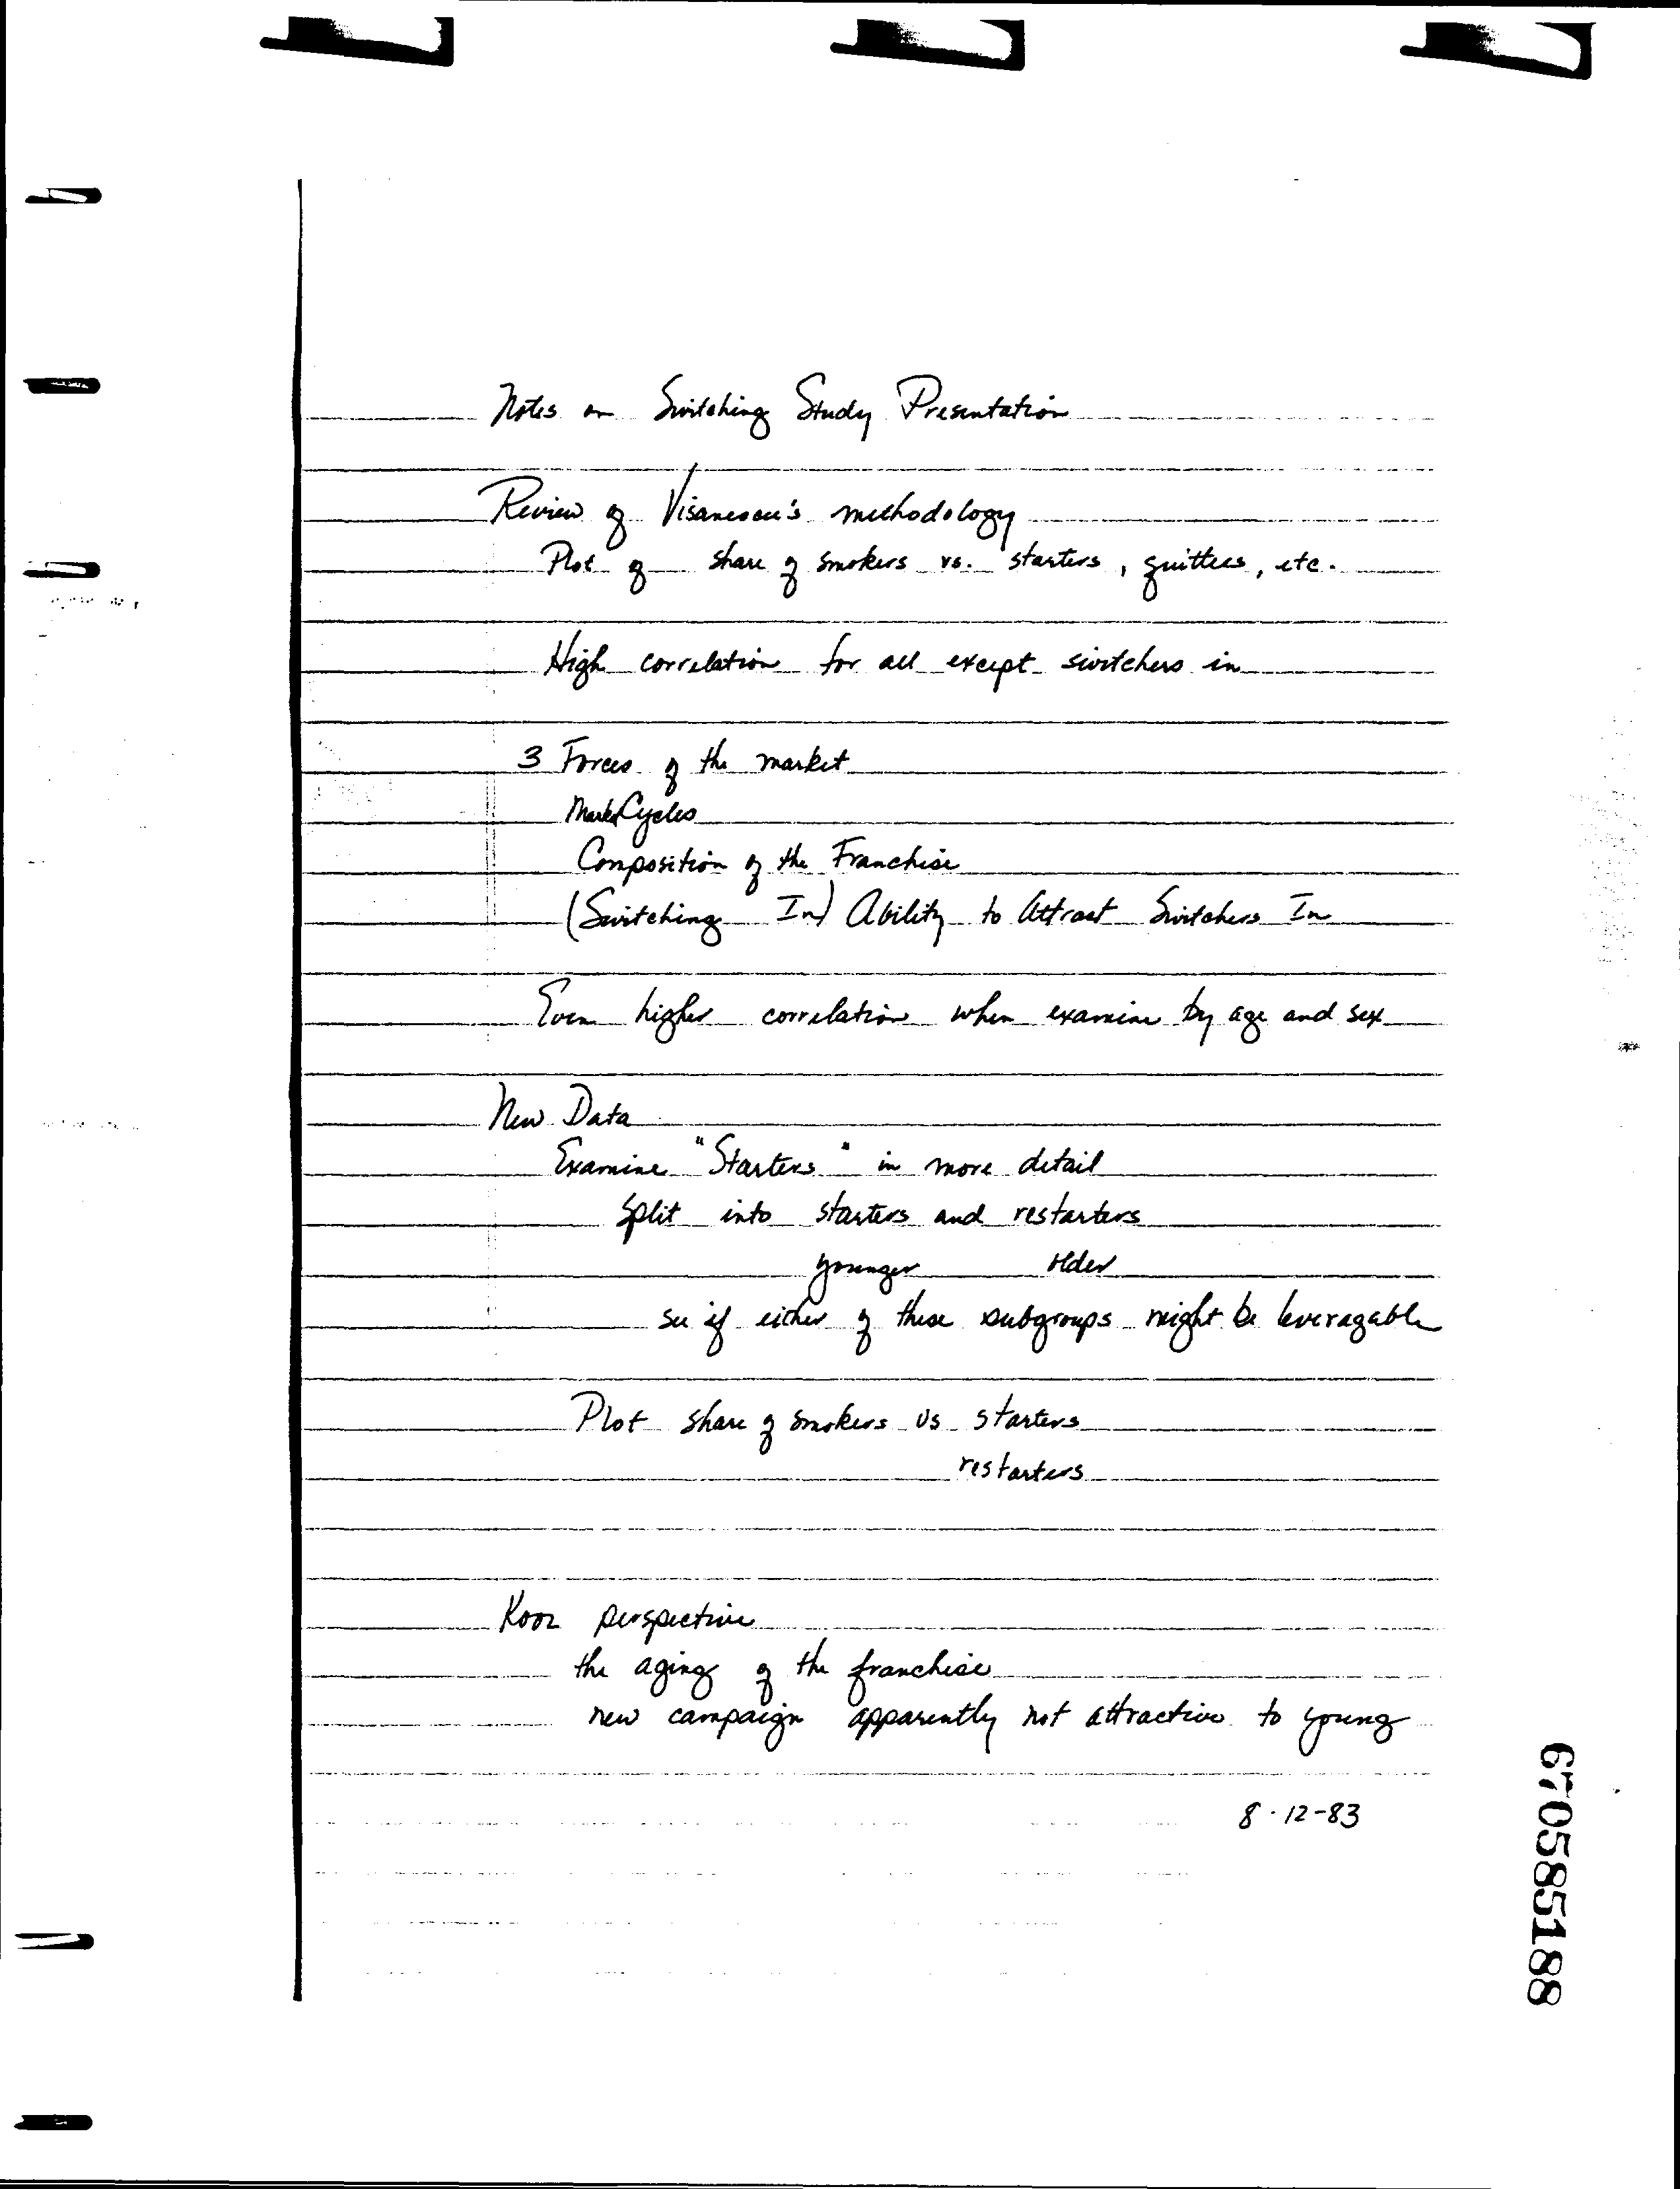 Notes on Switching Study Presentation
Review of Visanescu's methodology
Plot of share of smokers vs. starters, quitters, etc.
High correlation for all except switchers in
3 Forces of the market
Market Cycles
Composition of the Franchise
(Switching In) Ability to Attract Switchers In
Even higher correlation when examine by age and sex
New Data
Examine "Starters" in more detail
Split into starters and restarters
younger older
see if either of these subgroups might be leveragable
Plot share of smokers vs starters
restarters
Kool perspective
the aging of the franchise
new campaign apparently not attractive to young
8-12-83
670585188